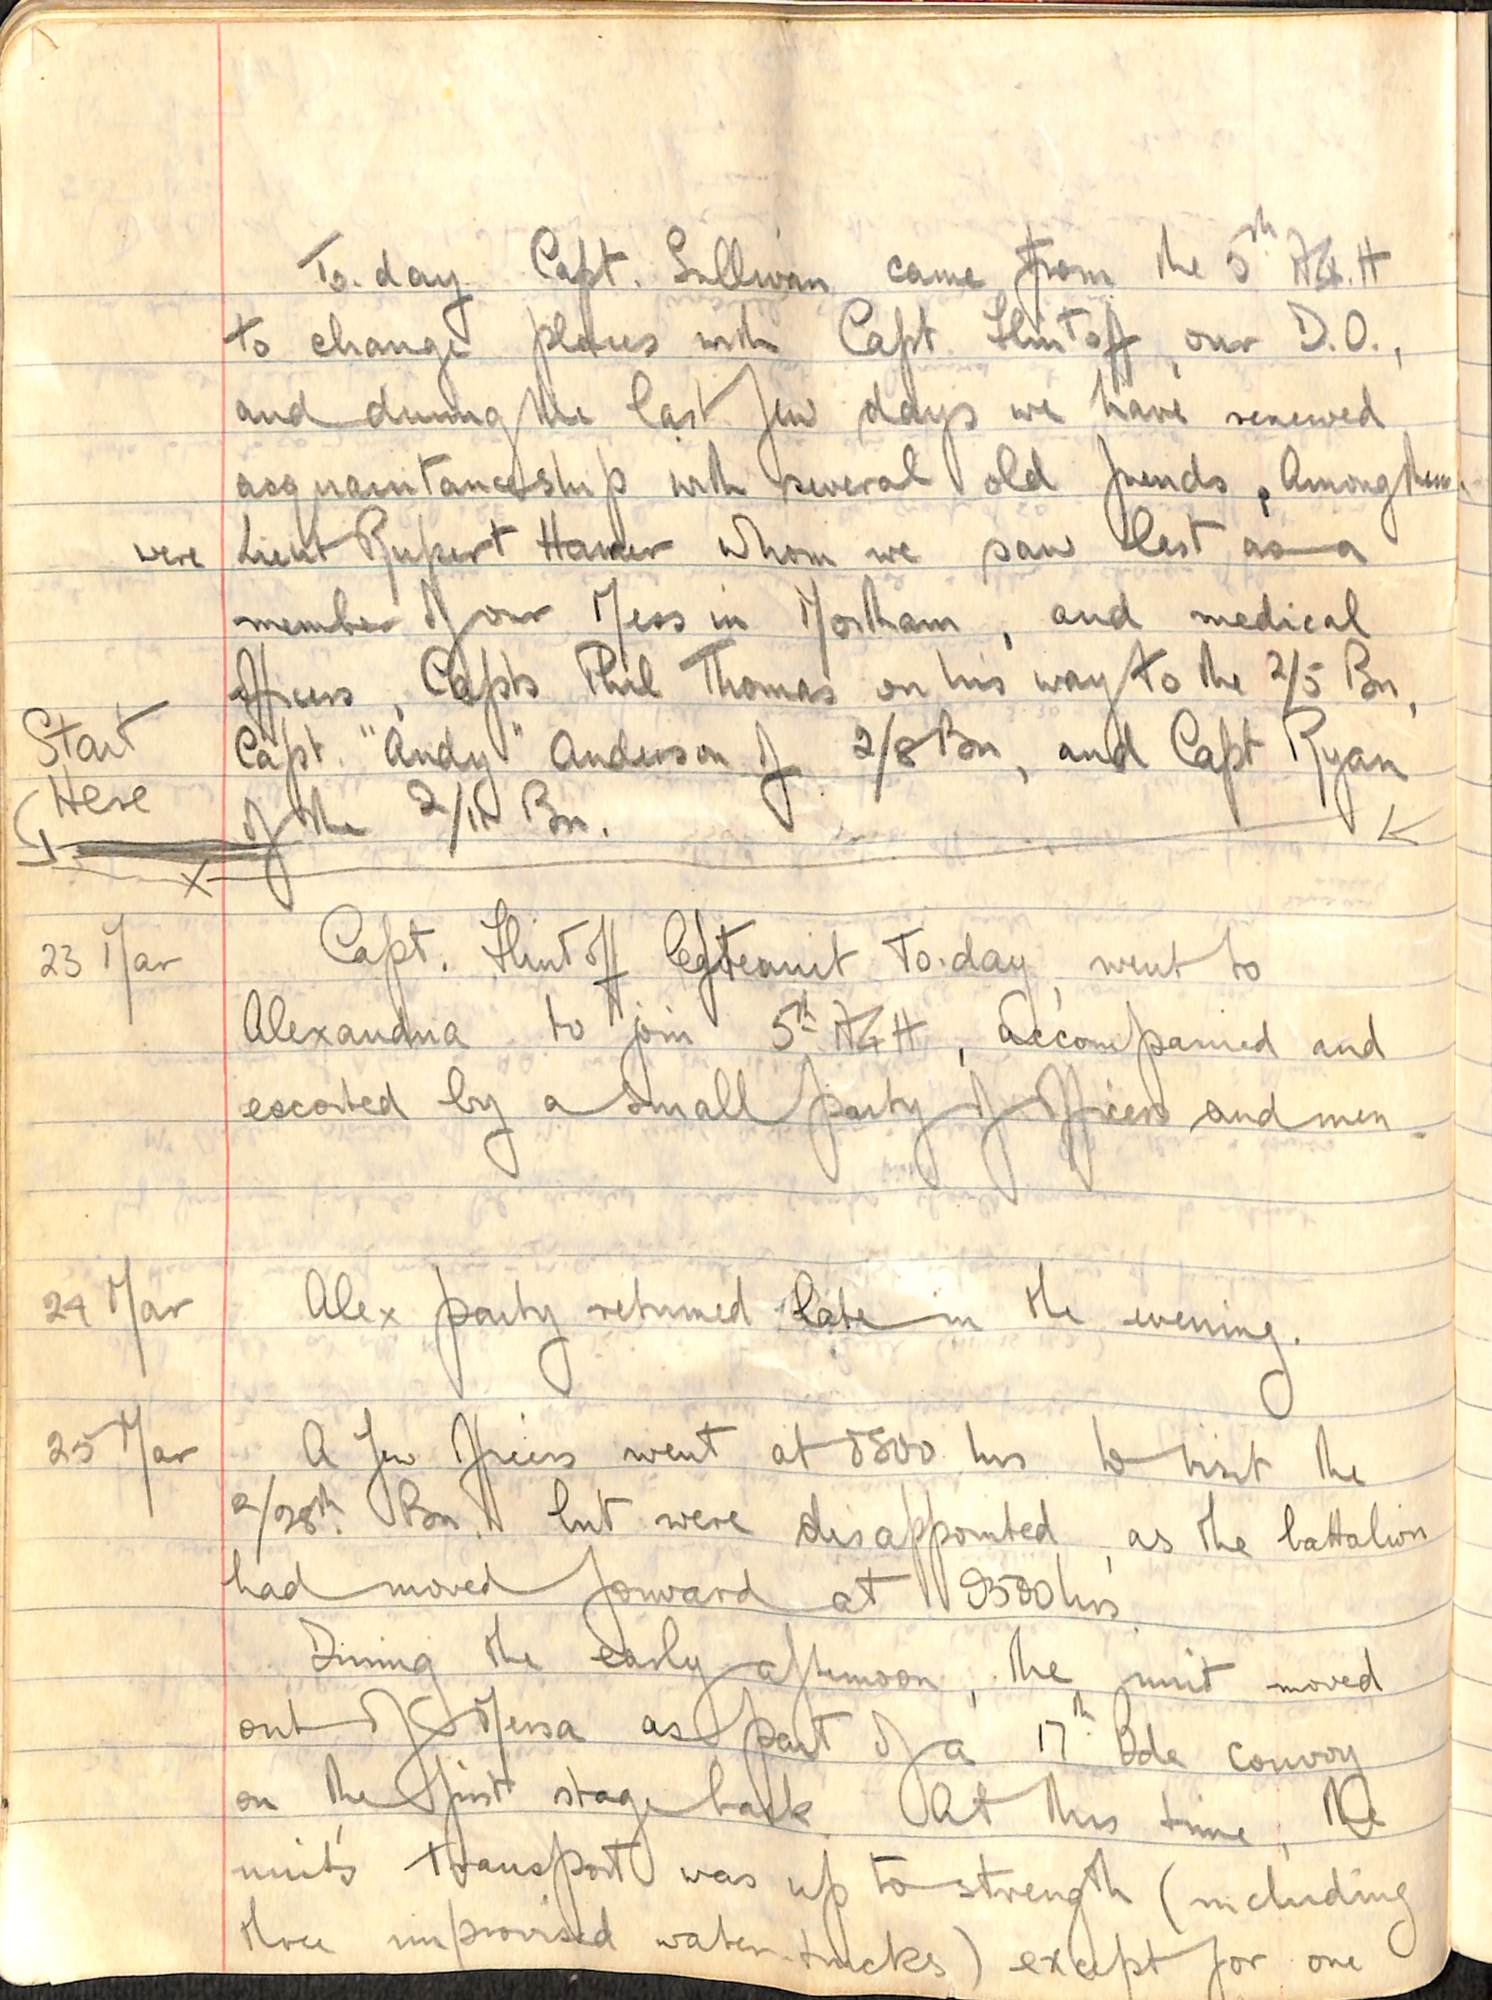 To.day Capt. Sullivan came from the 5th A.G.H
to change places with Capt Flintoff, our D.O.,
and during the last few days we have renewed
acquaintanceship with several old friends. Among them
were Lieut Rupert Hamer whom we saw last as a
member of our Mess in Northam, and medical
officers, Capts Phil Thomas on his way to the 2/5 Bn,
Capt. "Andy" Anderson of 2/8 Bn, and Capt Ryan
Start
Here
of the 2/11 Bn.
23 Mar Capt. Flintoff left unit To.day, went to
Alexandria to join 5th AGH, accompanied and
escorted by a small party of officers and men.
24 Mar Alex party returned late in the evening.
25 Mar A few officers went at 0800 hrs to visit the
2/28th Bn. but were disappointed, as the battalion
had moved forward at 0500 hrs.
During the early afternoon, the unit moved
out of Mersa as part of a 17th Bde convoy
on the first stage back. At this time, the
unit's transport was up to strength (including
three improvised water-trucks) except for one